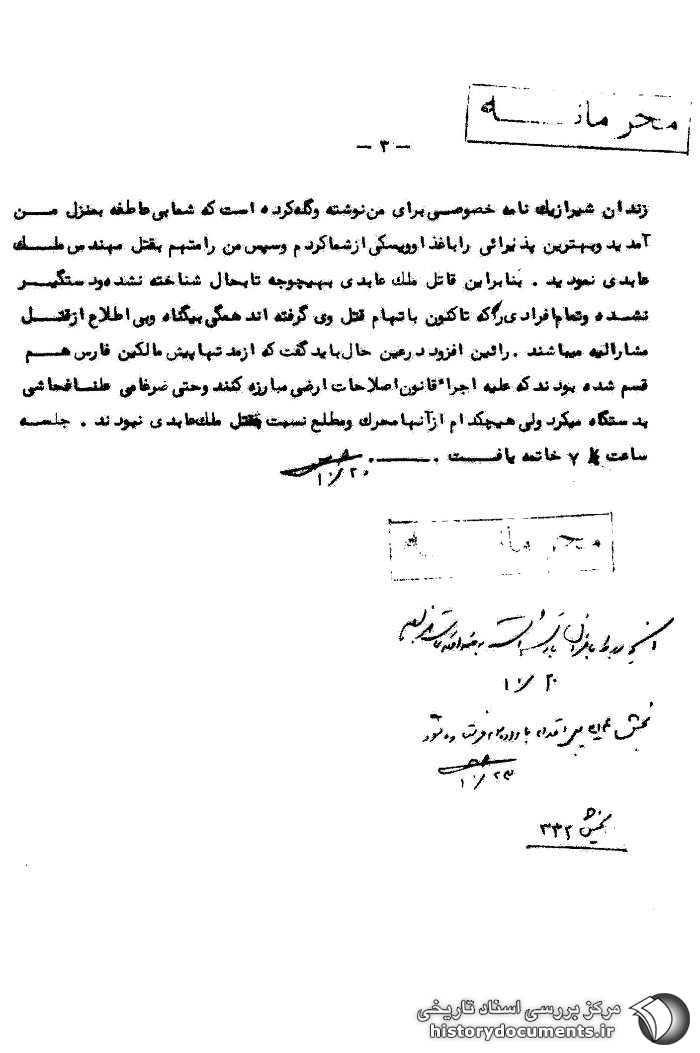 محرمانه
- ۳ -
زندان شیراز یک نامه خصوصی برای من نوشته و گله کرده است که شما بی عاطفه بمنزل مــن
آمدید و بهترین پذیرائی را با غذا و ویسکی از شما کردم و سپس من را متهم بقتل مهندس ملـــک
عابدی نمودید . بنابراین قاتل ملک عابدی بهیچوجه تا بحال شناخته نشده و دستگیـــر
نشــده و تمام افرادی را که تاکنون باتهام قتل وی گرفته اند همگی بیگناه و بی اطلاع از قتـــل
مشارالیه میباشند . رائین افزود در عین حال باید گفت که از مدتها پیش مالکین فارس هـــم
قسم شده بودند که علیه اجراء قانون اصلاحات ارضی مبارزه کنند و حتی ضرغامی علنا فحاشی
بدستگاه میکرد ولی هیچکدام از آنها محرک و مطلع نسبت بقتل ملک عابدی نبودند . جلســـه
ساعت ۷ خاتمه یافـــت .
۱۰/۲۰
محرمانه
۱۰/۲۰
بخش
۱۰/۲۳
بخش ۳۳۲
مرکز بررسی اسناد تاریخی
historydocuments.ir